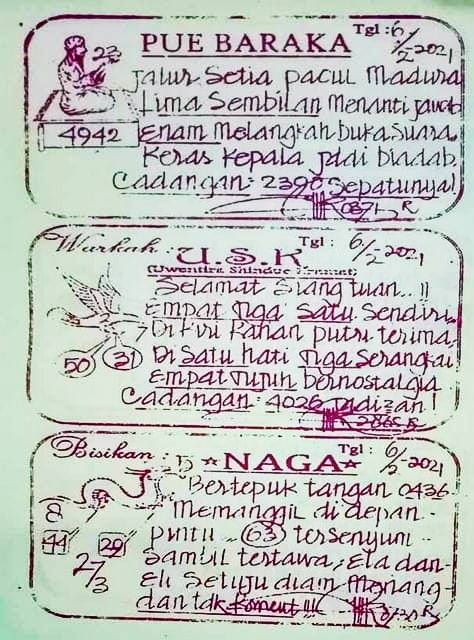 PUE BARAKA
Tgl : 6/2-2021
23
4942
Jalur Setia pacul Madura
Lima Sembilan Menanti
Enam Melangkah buka Suara
Keras Kepala
Cadangan : 2390 Sepatunya!
0371 R
Warkah : U.S.K
Tgl : 6/2-2021
(Uwentira Shindue Kramat)
Selamat Siang tuan..!!
Empat Tiga Satu Sendiri
Di Kiri Kanan putri terima
50 31
Di Satu hati Tiga Serangkai
Empat Tujuh bernostalgia
Cadangan : 4026
2865 R
Bisikan : NAGA
Tgl : 6/2-2021
Bertepuk tangan 0436
8
Memanggil di depan
44 29
pintu 63 tersenyum
27/3
Sambil tertawa, Eta dan
Eli Setuju diam Menang
dan tdk Koment !!!
R